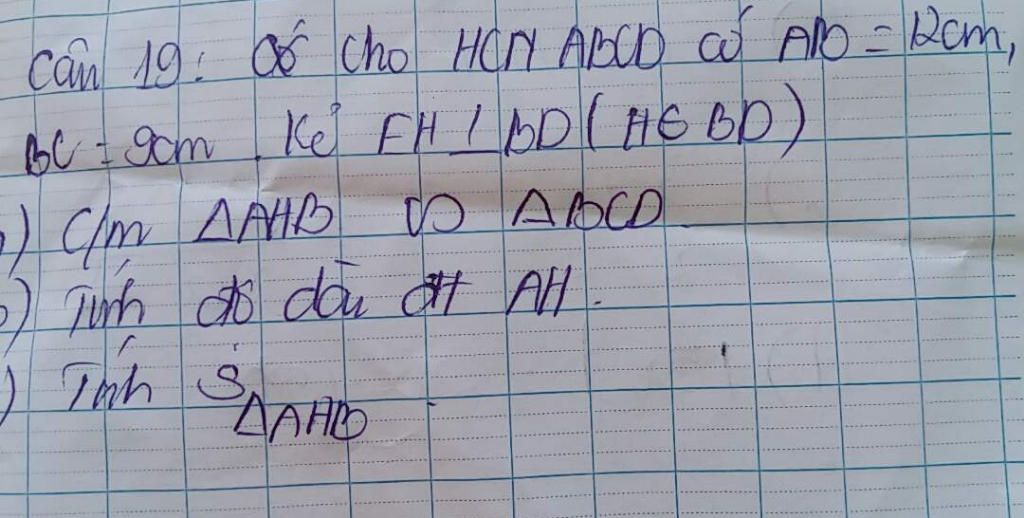 Câu 19: Cho HCN ABCD có AB = 12cm,
BC = 9cm. Kẻ AH ⊥ BD (H ∈ BD)
) C/m ΔAHB ∽ ΔBCD
) Tính độ dài đt AH.
) Tính S ΔAHB.